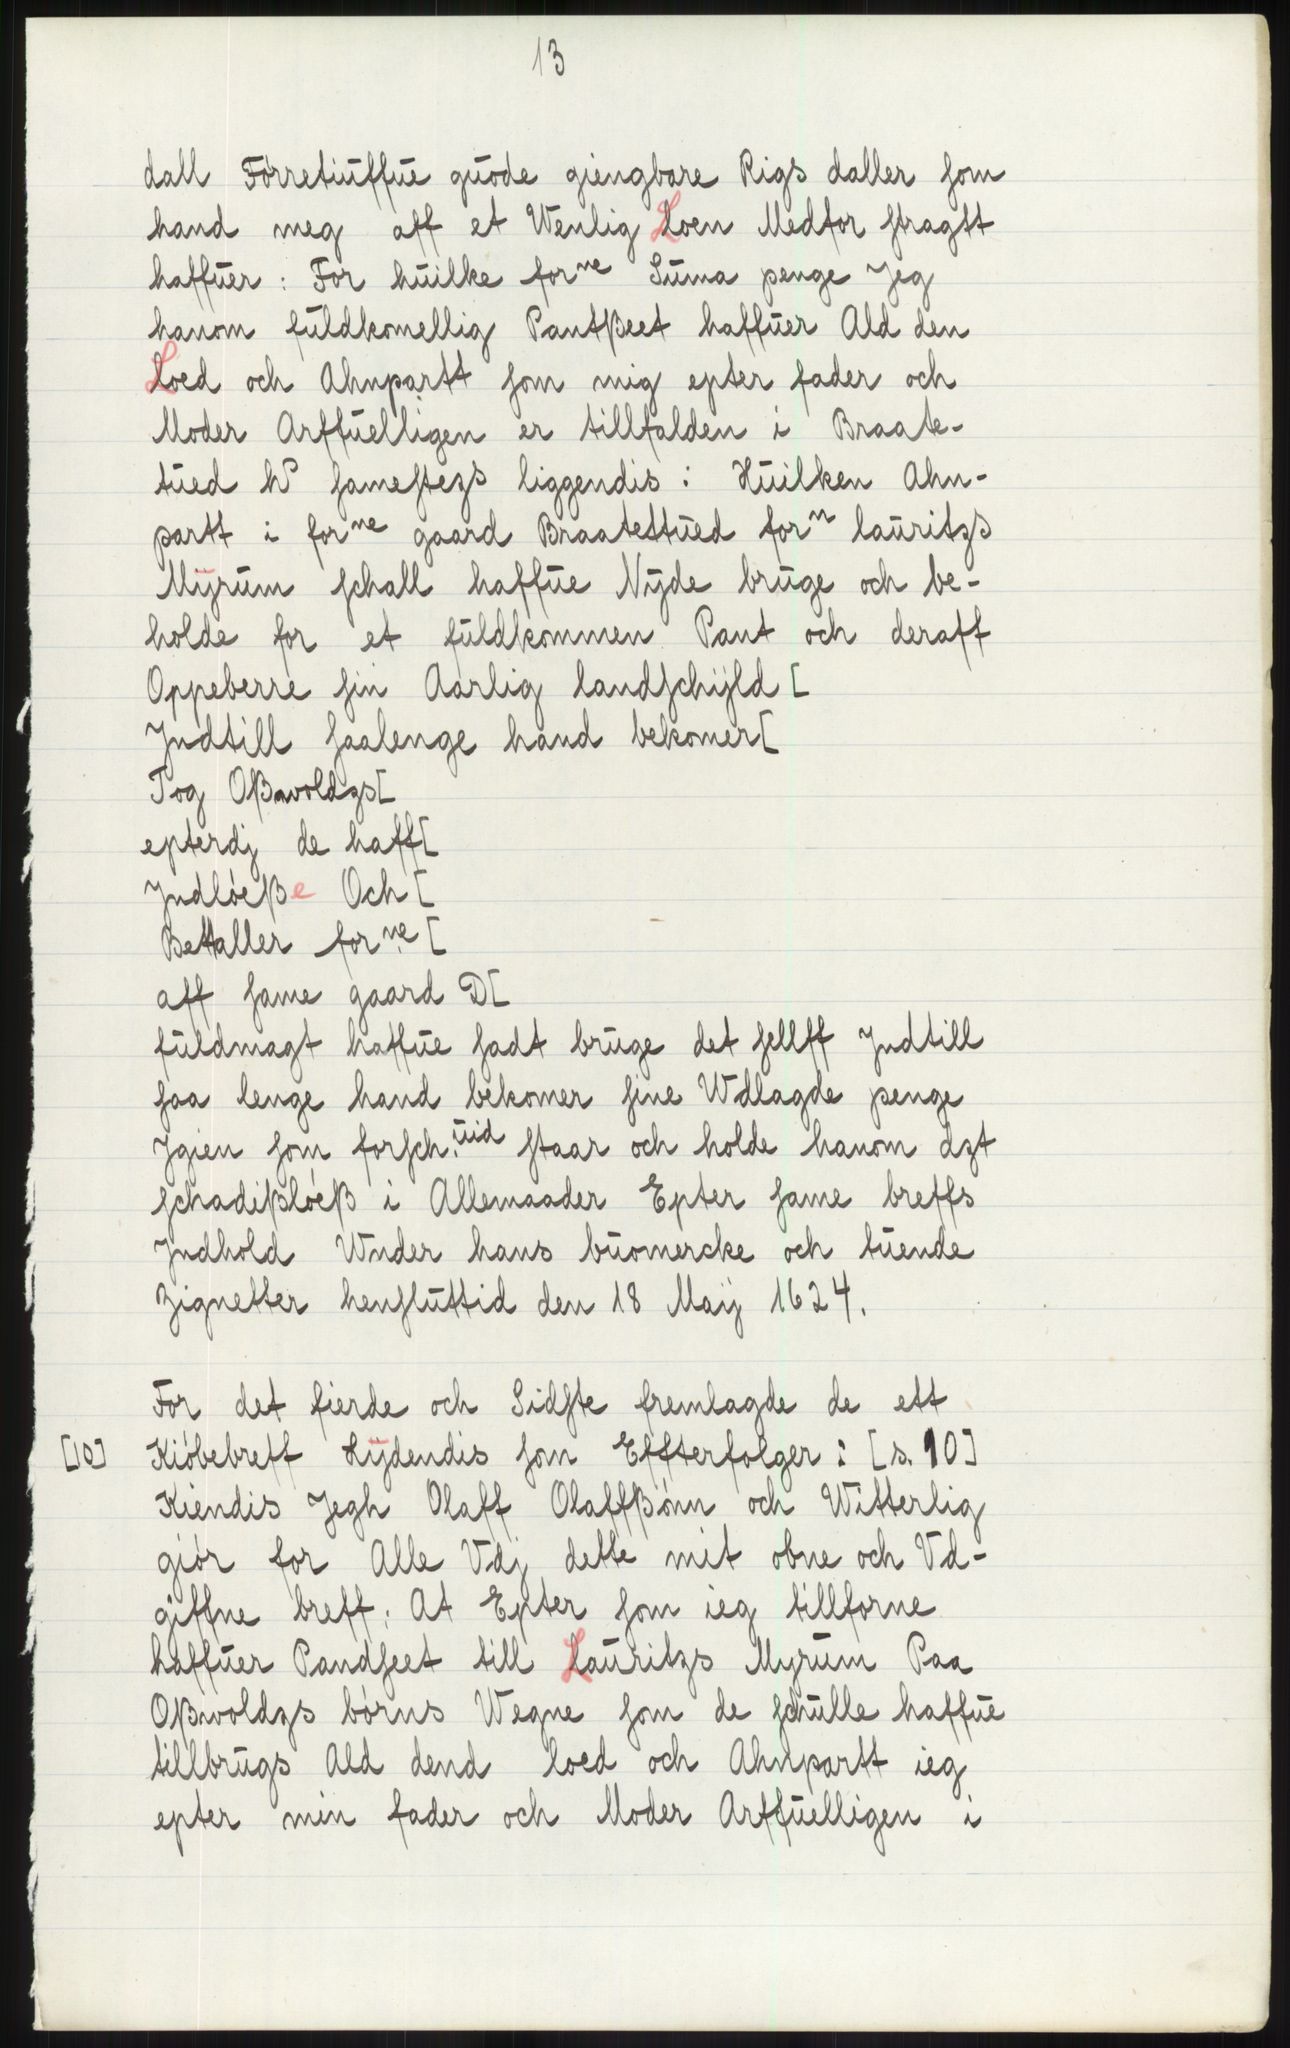 13
dall Förretiuffue guode giengbare Rigs daller som
hand meg aff et Wenlig Loen Medfor stragtt
haffuer: For huilke forne Suma penge Jeg
hanom fuldkomellig Pantßeet haffuer Ald den
Loed och Ahnpartt som mig epter fader och
Moder Arffuelligen er tillfalden i Braate-
tued
samestezs liggendis: Huilken Ahn-
partt i forne gaard Braatettued forn lauritzs
Mÿrum schall haffue Nÿde bruge och be-
holde for et fuldkommen Pant och deraff
Oppeberre sin Aarlig landschÿld [
Jndtill saalenge hand bekomer [
Tog Oßwoldzs [
epterdj de haff [
Jndlöeße Och [
Bettaller forne [
aff same gaard D [
fuldmagt haffue sadt bruge det sellff Jndtill
saa lenge hand bekomer sine Wdlagde penge
Jgien som forsch. uid staar och holde hanom dzt
schadißlöeß i Allemaader Epter same breffs
Jndhold Wnder hans buomercke och tuende
Zignetter hensluttid den 18 Maÿ 1624.
For det fierde och Sidste fremlagde de ett
[10] Kiöbebreff Lÿdendis som Effterfolger: [s. 10]
Kiendis Jegh Olaff Olaffßönn och Witterlig
giör for Alle Vdj dette mit obne och Vd-
giffne breff. At Epter som ieg tillforne
haffuer Pandseet till Lauritzs Myrum Paa
Oßwoldzs börns Wegne som de schulle haffue
tillbrugs Ald dend loed och Ahnpartt ieg
epter min fader och Moder Arffuelligen i